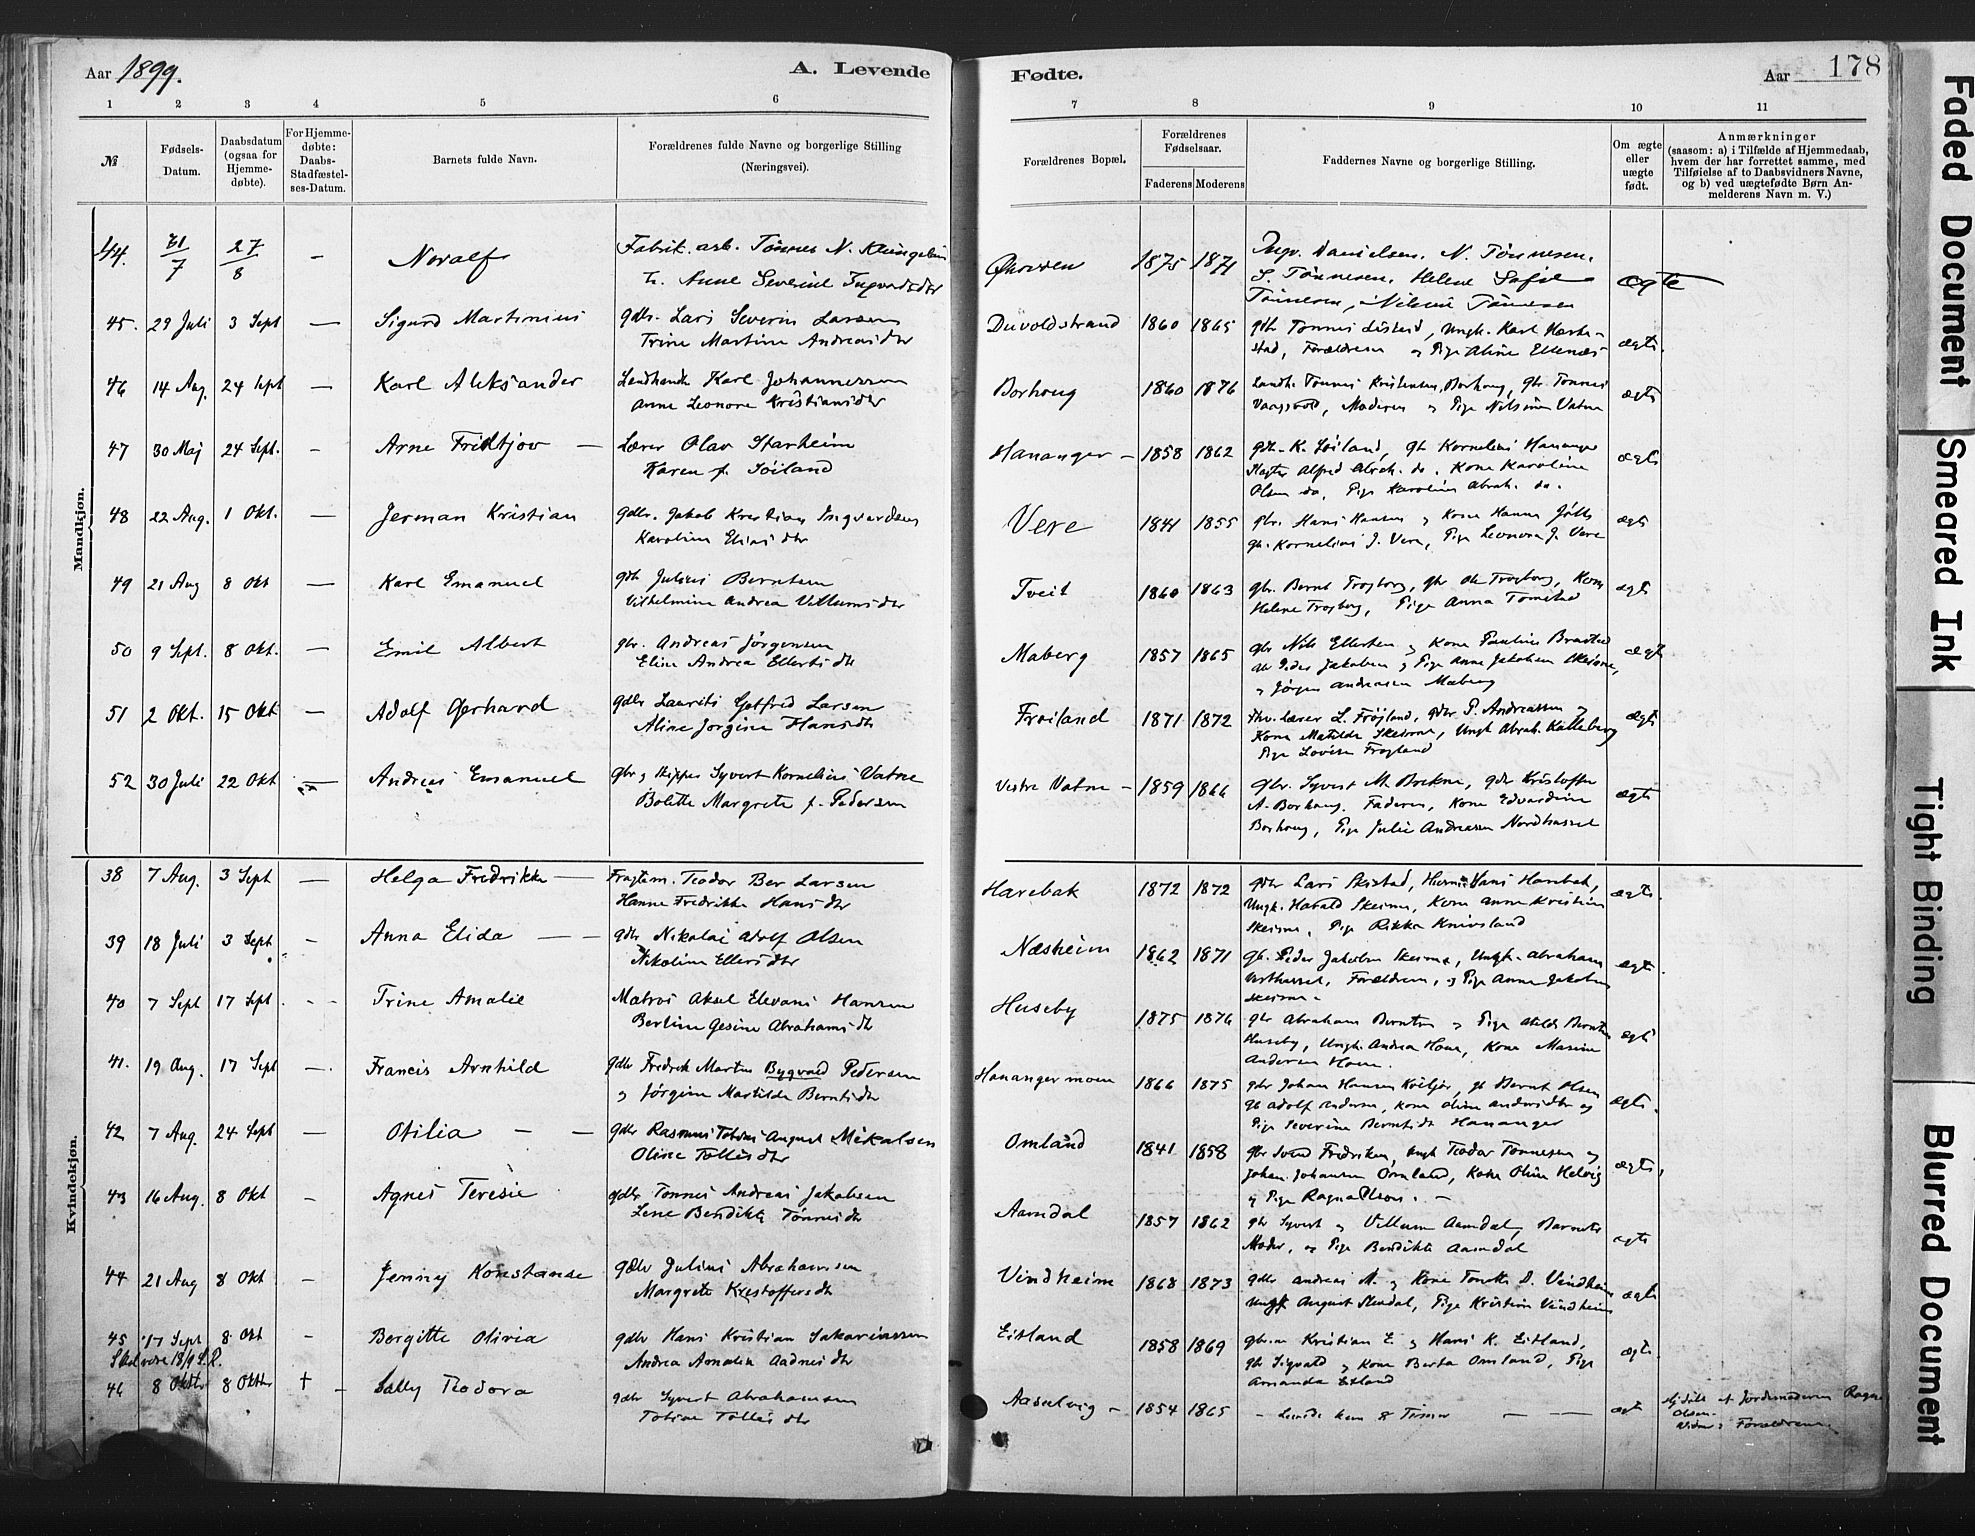 Aar 1899.
A. Levende
Fødte.
Aar
178
1 2 3 4 5 6 7 8 9 10 11
№
Fødsels-
Datum.
Daabsdatum
(ogsaa for
Hjemme-
døbte).
For Hjemme-
døbte:
Daabs-
Stadfæstel-
ses-Datum.
Barnets fulde Navn.
Forældrenes fulde Navne og borgerlige Stilling
(Næringsvei).
Forældrenes Bopæl.
Forældrenes
Fødselsaar.
Faderens Moderens
Faddernes Navne og borgerlige Stilling.
Om ægte
eller
uægte
født.
Anmærkninger
(saasom: a) i Tilfælde af Hjemmedaab,
hvem der har forrettet samme, med
Tilføielse af to Daabsvidners Navne,
og b) ved uægtefødte Børn An-
melderens Navn m. V.)
Mandkjøn.
44. 31/7 27/8 — Noralf Fabrik. arb. Tønnes N. 1875 1871 Danielsen. N. Tønnesen.
h. Anne Severine S. Tønnesen, Helene Sofie ægte
Tønnesen
45. 29 Juli 3 Sept — Sigurd Martinius gdbr. Lars Severin Larsen Duvoldstrand 1860 1865
Trine Martine Andreasdtr Forældrene og Pige Aline Ellenæs ægte.
46 14 Aug. 24 Sept — Karl Aleksander Landhandl. Karl Johannessen Borhoug 1860 1876 Landh. Tønnes Kristensen, Borhoug, gbr. Tønnes ægte
Anne Leonore Kristiansdtr Moderen og Pige Nilsine Vatne
47 30 Maj 24 Sept. — Arne Fridtjov — Lærer Olav Starheim Hananger — 1858 1862 gdb. K. Søiland, gb Kornelius Hananger ægte
Karen f. Søiland Alfred Abrah. do. Kone Karoline
Olsen do, Pige Karoline Abrah. do.
48 22 Aug. 1 Okt. — Jerman Kristian gdbr. Jakob Kristian Ingvardsen Vere 1841 1855 gbr. Hans Hansen og Kone Hanna ægte
Karoline Eliasdtr gb. Kornelius J. Vere, Pige Leonora J. Vere
49 21 Aug 8 Okt — Karl Emanuel gdb Julius Berntsen Tveit 1860 1863 gbr. Bernt Frogborg, gbr Ole Frogborg, Kone ægte
Vilhelmine Andrea Villumsdtr Helene Frogborg, Pige Anna Tomstad
50 9 Sept. 8 Okt. — Emil Albert gbr. Andreas Jørgensen Maberg 1857 1865 gbr Nils Ellertsen og Kone Pauline ægte
Eline Andrea Ellertsdtr Peder Jakobsen og Pige Anne Jakobsen Skeime,
og Jørgen Andreasen Maberg
51 2 Okt. 15 Okt — Adolf Gerhard gdbr Laurits Gotfred Larsen Frøiland 1871 1872 lærer L. Frøiland, gdbr P. Andreassen og ægte
Aline Jorgine Hansdtr Kone Matilde Skeime, Ungk Abrah. Kalleberg
Pige Lovise Frøyland
52 30 Juli 22 Okt — Andreas Emanuel gbr og Skipper Syvert Kornelius Vatne Vestre Vatne — 1859 1866 gbr. Syvert M. Brekne, gdbr Kristoffer
Bolette Margrete f. Pedersen A. Borhaug. Faderen, Kone Edvardine ægte
Borhaug, Pige Julie Andreasen Nordhassel
Kvindekjøn.
38 7 Aug. 3 Sept — Helga Fredrikke — Fragtem. Teodor Ber Larsen Harebak 1872 1872 gdbr Lars Skistad, Hans Harebak, ægte.
Hanne Fredrikke Hansdtr Ungk. Harald Skeime, Kone Anne Kristine
Skeime, Pige Rikka Knivsland
39 18 Juli 3 Sept — Anna Elida — gdbr Nikolai Adolf Olsen Næsheim 1862 1871 gb. Peder Jakobsen Skeime, Ungk. Abraham ægte
Nikoline Ellersdtr Vesthassel, Forældrene, og Pige Anna Jakobsen
Skeime.
40 7 Sept 17 Sept. — Trine Amalie Matros Aksel Elevani Hansen Huseby 1875 1876 gbr Abraham Berntsen og Pige Berntsen ægte
Berline Gesine Abrahamsdtr Huseby, Ungk. Andrea Hom, Kone Maxine
Andersen Hom.
41. 19 Aug. 17 Sept — Francis Arnhild gdbr Fredrik Martin Bygvold Pedersen Hanangermoen 1866 1875 gdbr Johan Hansen gb Bernt Olsen
og Jørgine Matilde Berntsdtr gb Adolf Anders Kone Oline Andersdtr og ægte.
Pige Severine Berntsdtr Hananger
42 7 Aug. 24 Sept — Otilia — — gdbr Rasmus Tobias August Mikalsen Omland 1841 1858 gbr Svend Fredriksen, Ungk Teodor Tønnesen og
Oline Tollisdtr Johan Johansen Omland, Kone Oline Helvig ægte.
og Pige Ragna Olsen.
43 16 Aug. 8 Okt — Agnes Teresie gdbr Tønnes Andreas Jakobsen Aamdal 1857 1862 gbr Syvert og Villum Aamdal, Barnets ægte
Lene Bendikte Tønnesdtr Moder, og Pige Bendikte Aamdal
44 21 Aug 8 Okt — Jenny Konstanse gdbr Julius Abrahamsen Vindheim 1868 1873 gdbr Andreas M. og Kone D. Vindheim ægte
Margrete Kristoffersdtr Ungk August Pige Kristine Vindheim
45 17 Sept 8 Okt — Borgitte Olivia gdbr Hans Kristian Sakariassen Eitland 1858 1869 Kristian E. og Hans K. Eitland, ægte
Skal være 18/9 Andrea Amalia Aadnesdtr gbr Sigvald og Kone Berta Omland, Pige
Amanda Eitland
46 8 Oktbr 8 Oktbr † — Sally Teodora gdbr Syvert Abrahamsen Aaselvig — 1854 1865 — Levede kun 8 Timer — — ægt Hjdøbt af Jordemoderen Ragna
Tobine Tollisdtr Olsen.
Vidner: Forældrene.
Faded Document
Smeared Ink
Tight Binding
Blurred Document